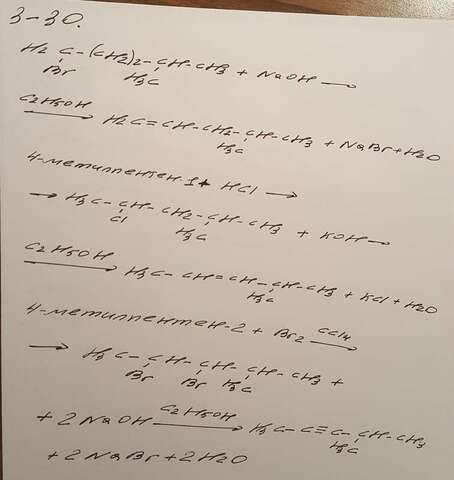 3-30.
H2C-(CH2)2-CH-CH3 + NaOH →
Br H3C
C2H5OH → H2C=CH-CH2-CH-CH3 + NaBr+H2O
H3C
4-метилпентен-1 + HCl →
→ H3C-CH-CH2-CH-CH3 + KOH →
Cl H3C
C2H5OH → H3C-CH=CH-CH-CH3 + KCl + H2O
H3C
4-метилпентен-2 + Br2 CCl4 →
→ H3C-CH-CH-CH-CH3 +
Br Br H3C
+ 2NaOH C2H5OH → H3C-C≡C-CH-CH3
H3C
+ 2NaBr+2H2O